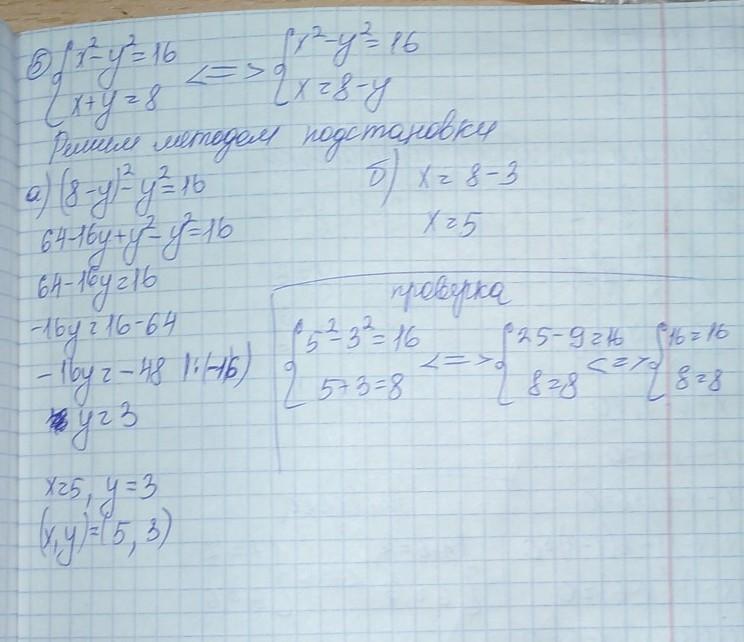 б) { x² - y² = 16 <=> { x² - y² = 16
{ x + y = 8 { x = 8 - y
Решим методом подстановки
а) (8 - y)² - y² = 16
64 - 16y + y² - y² = 16
64 - 16y = 16
-16y = 16 - 64
-16y = -48 |:(-16)
y = 3
б) x = 8 - 3
x = 5
проверка
{ 5² - 3² = 16 <=> { 25 - 9 = 16 <=> { 16 = 16
{ 5 + 3 = 8 { 8 = 8 { 8 = 8
x = 5, y = 3
(x, y) = (5, 3)